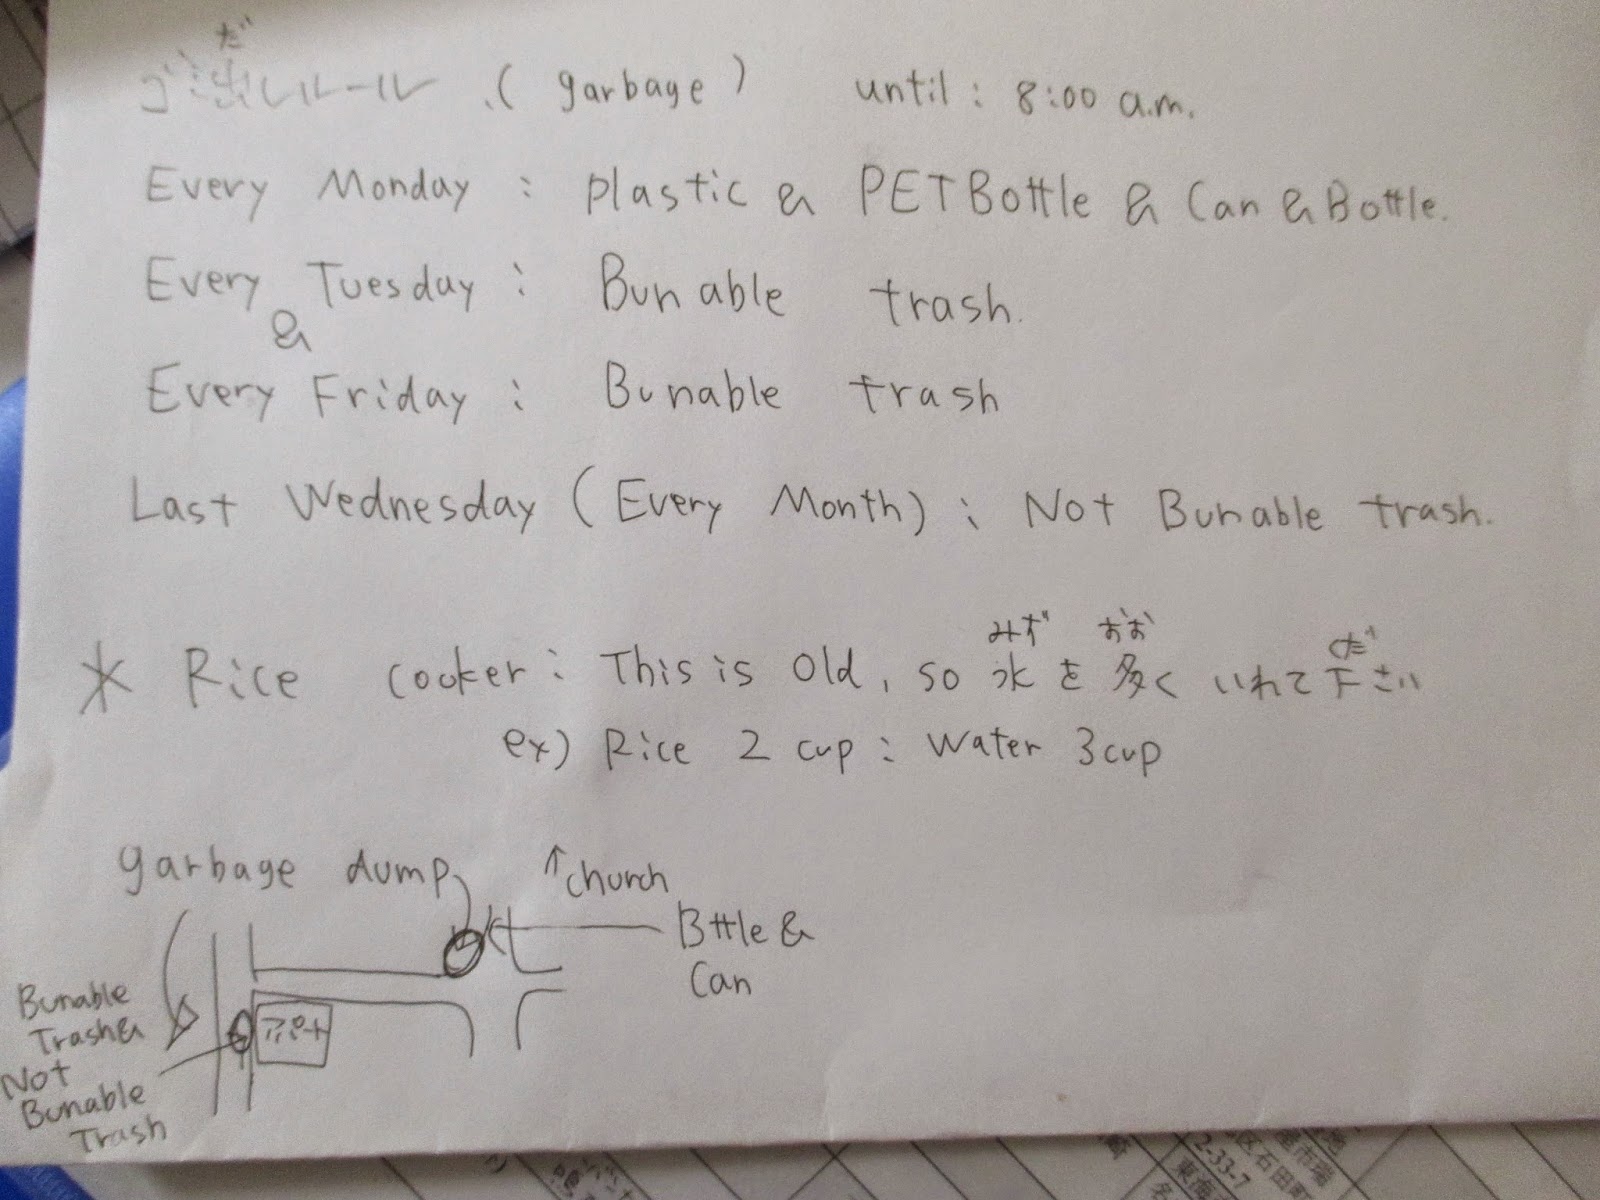 だ
ゴミ出しルール (garbage) until: 8:00 a.m.
Every Monday : plastic & PETBottle & Can & Bottle.
Every Tuesday : Bunable trash.
&
Every Friday : Bunable trash
Last Wednesday (Every Month) : Not Bunable trash.
みず おお だ
* Rice cooker : This is old, so 水を多くいれて下さい
ex) Rice 2 cup : Water 3 cup
garbage dump
↑church
Bttle &
Can
Bunable
Trash&
Not
Bunable
Trash
アパート
2-33-7